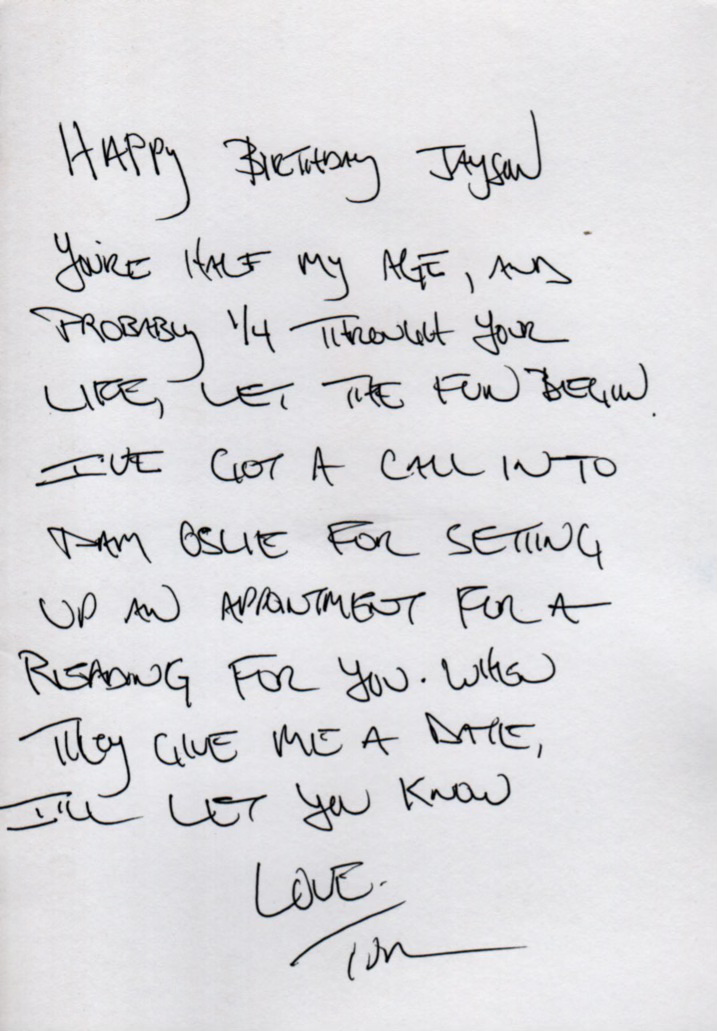 HAPPY BIRTHDAY JAYSON
YOU'RE HALF MY AGE, AND
PROBABLY 1/4 THROUGH YOUR
LIFE, LET THE FUN BEGIN.
I'VE GOT A CALL IN TO
PAM OSLIE FOR SETTING
UP AN APPOINTMENT FOR A
READING FOR YOU. WHEN
THEY GIVE ME A DATE,
I'LL LET YOU KNOW
LOVE.
TOM